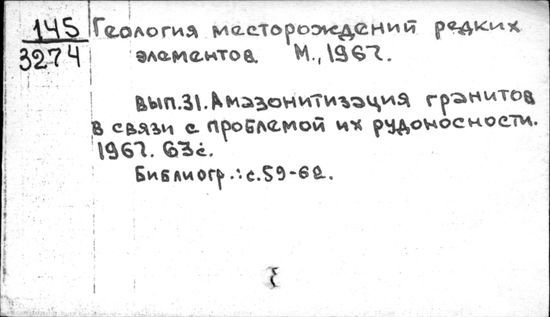 145
3274
Геология месторождений редких
элементов. М., 1967.
вып.31. Амазонитизация гранитов
в связи с проблемой их рудоносности.
1967. 63с.
Библиогр.: с.59-62.